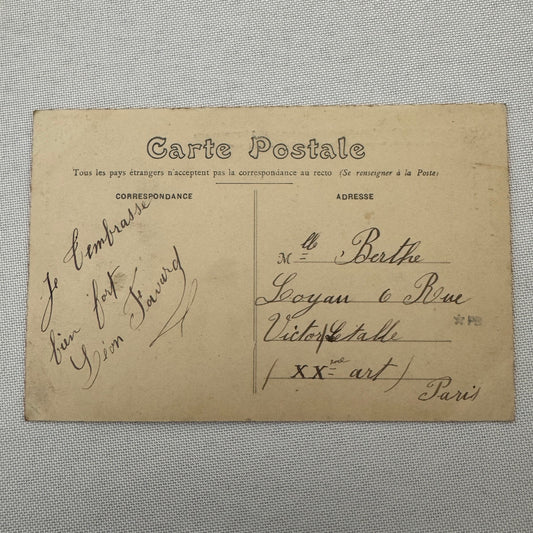 Carte Postale
Tous les pays étrangers n'acceptent pas la correspondance au recto (Se renseigner à la Poste)
CORRESPONDANCE
Je t'embrasse
bien fort
Léon Favard
ADRESSE
Mlle Berthe
Loyau 6 Rue
Victor Letalle
(XXme art)
Paris
PB